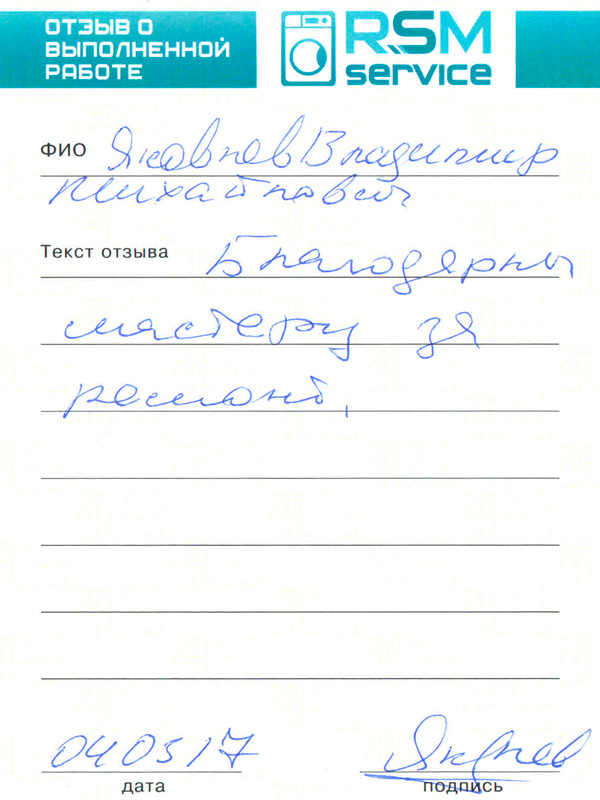 ОТЗЫВ О
ВЫПОЛНЕННОЙ
РАБОТЕ
RSM
service
ФИО Яковлев Владимир
Михайлович
Текст отзыва Благодарны
мастеру за
ремонт.
04 03 17 Яковлев
дата подпись